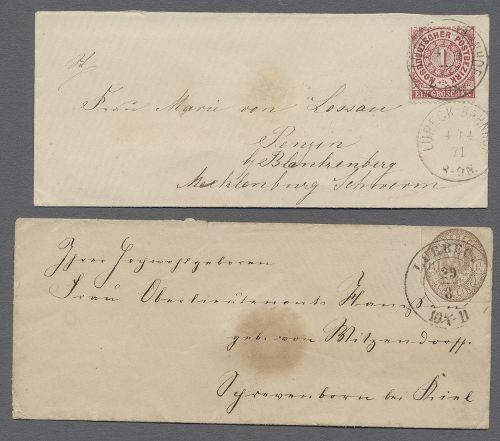 Frau Marie von Lossau
Penzin
b/Blankenberg
Mecklenburg Schwerin
NORDDEUTSCHER POSTBEZIRK
1
EIN GROSCHEN
LÜBECK BAHNHOF
4 14
71
8-9N.
Ihrer Hochwohlgeboren
Frau Oberlieutenant Hanssen
geb. von Witzendorff.
Schrevenborn bei Kiel
LUEBECK
29
3
10¼-11